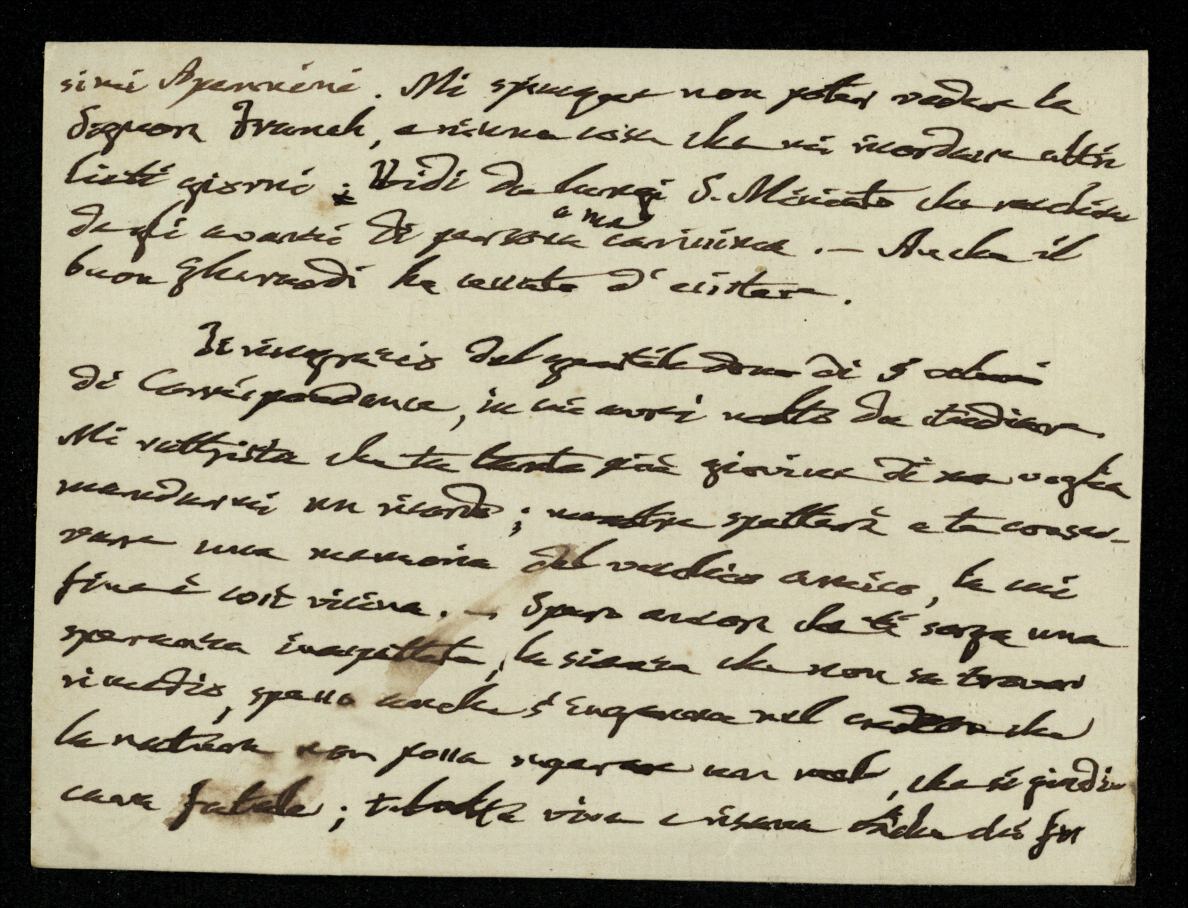 simi Apennini. Mi spiacque non poter vedere la
Signora Franch, e niuna cosa che mi ricordava altri
lieti giorni; Vidi da lungi S. Miniato che racchiude
degli avanzi di persona a me carissima. — Anche il
buon Gherardi ha cessato d'esistere.
Ti ringrazio del gentile dono di 5 volumi
di Correspondance, in cui avrei molto da studiare.
Mi rattrista che tu tanto più giovine di me voglia
mandarmi un ricordo; mentre spetterà a te conser-
vare una memoria del vecchio amico, la cui
fine è così vicina. — Spero ancor che ti sorga una
speranza inaspettata, la scienza che non sa trovar
rimedio, spesso anche s'inganna nel credere che
la natura non possa superare un mal, che si giudi-
cava fatale; talvolta vive e risana che ciò fu